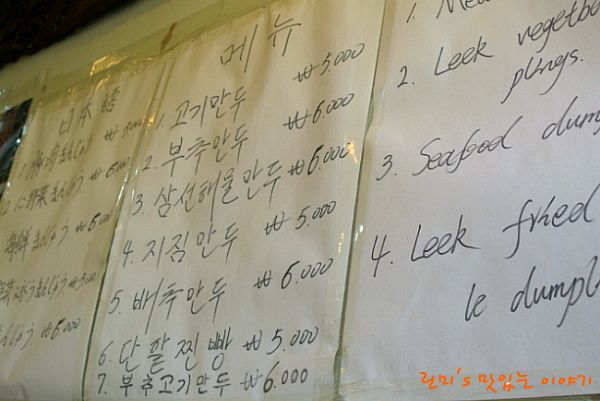 日本語
₩5.000
₩6.000
海鮮まんじゅう ₩6.000
₩5.000
₩6.000
메뉴
1. 고기만두 ₩5.000
2. 부추만두 ₩6.000
3. 삼선해물만두 ₩6.000
4. 지짐만두 ₩5.000
5. 배추만두 ₩6.000
6. 단팥찐빵 ₩5.000
7. 부추고기만두 ₩6.000
1. Mea
2. Leek vegetba
plings.
3. Seafood dum
4. Leek fried
le dumpl
런미's 맛있는 이야기